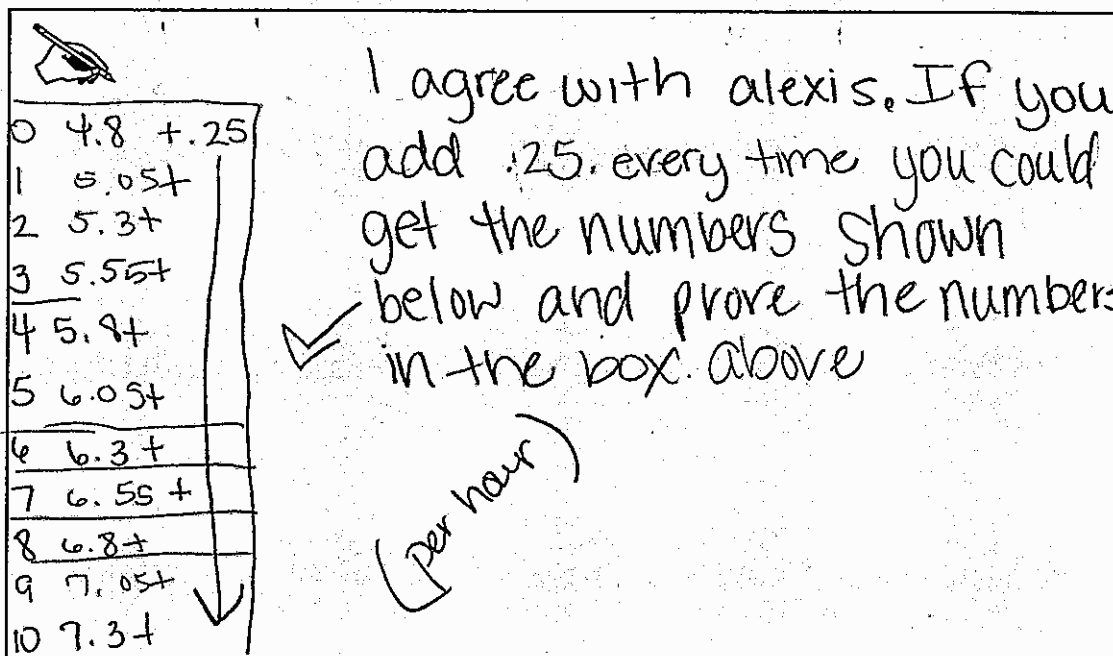 0 4.8 +.25
1 5.05+
2 5.3+
3 5.55+
4 5.8+
5 6.05+
6 6.3+
7 6.55+
8 6.8+
9 7.05+
10 7.3+
I agree with alexis. If you
add .25. every time you could
get the numbers shown
below and prove the numbers
in the box. above
(per hour)